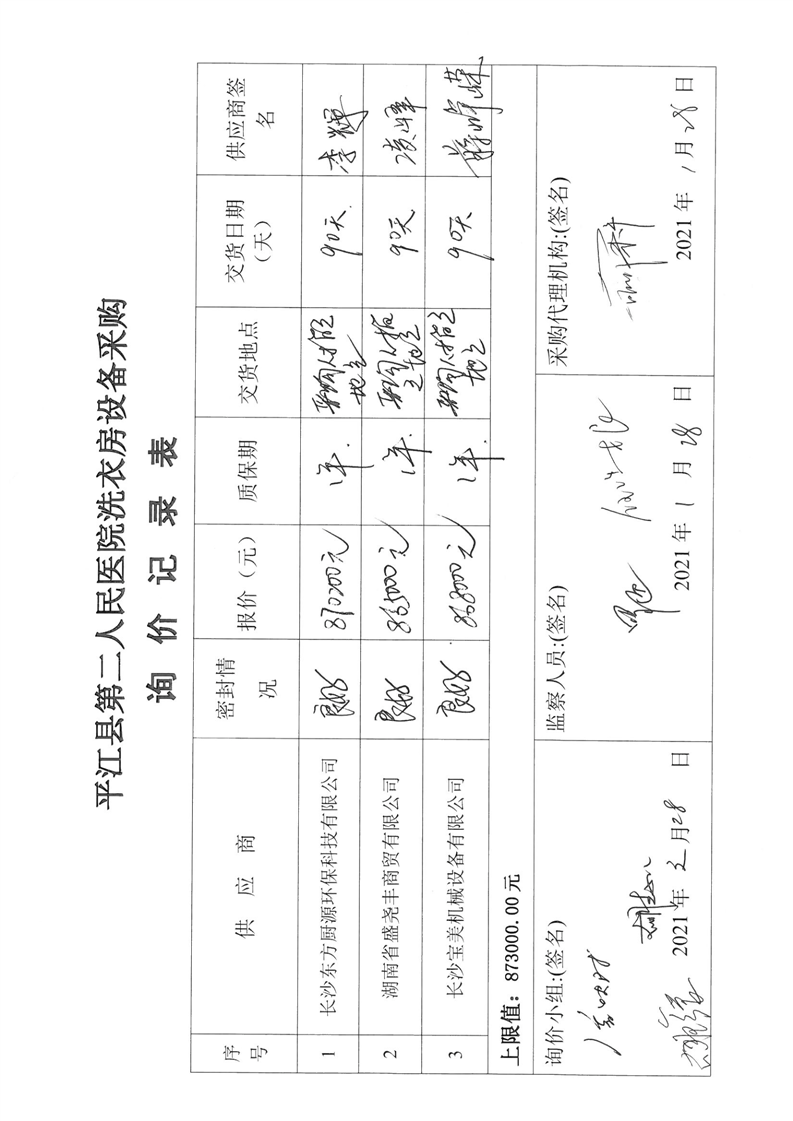 平江县第二人民医院洗衣房设备采购
询 价 记 录 表
序号 供 应 商 密封情况 报价（元） 质保期 交货地点 交货日期（天） 供应商签名
1 长沙东方厨源环保科技有限公司 良好 870200元 1年. 采购人指定地点 90天. 李辉
2 湖南省盛尧丰商贸有限公司 良好 865000元 1年. 采购人指定地点 90天
3 长沙宝美机械设备有限公司 良好 868000元 1年. 采购人指定地点 90天
上限值：873000.00 元
询价小组:(签名) 监察人员:(签名) 采购代理机构:(签名)
2021 年 月 28 日 2021 年 1 月 28 日 2021 年 1 月 28 日